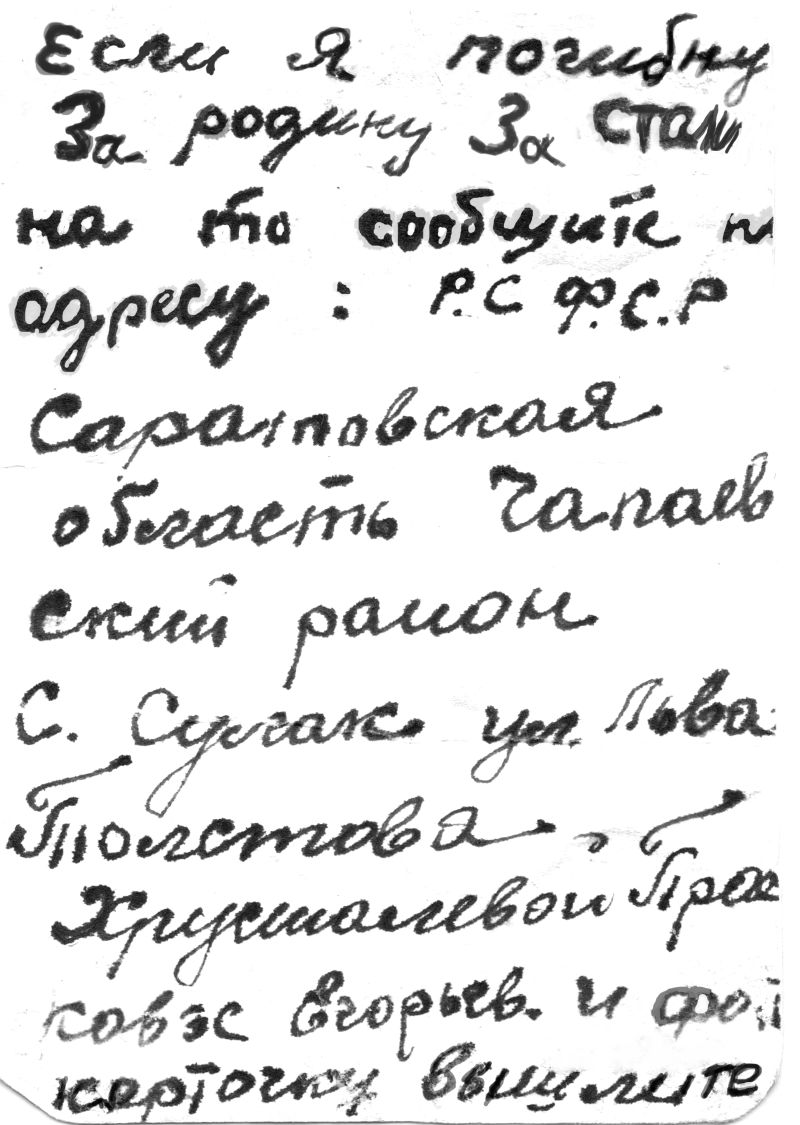 Если я погибну
За родину За Стали
на то сообщите по
адресу: Р.С Ф.С.Р
Саратовская
область Чапаев
ский район
С. Сулак ул. Льва
Толстова
Хрусталевой Прас
ковэс Егорьев. и фот
карточку вышлите